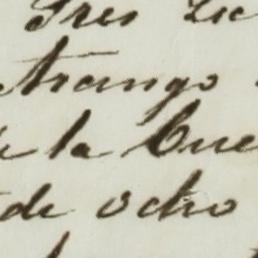 Tres
trango
de la Cue
de ocho